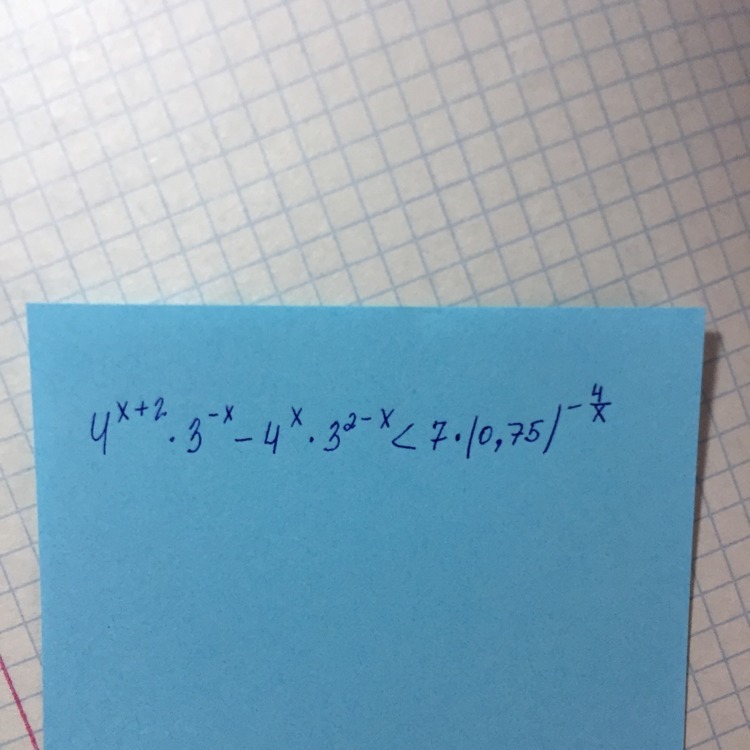 4^{x+2} · 3^{-x} - 4^{x} · 3^{2-x} < 7 · (0,75)^{-\frac{4}{x}}